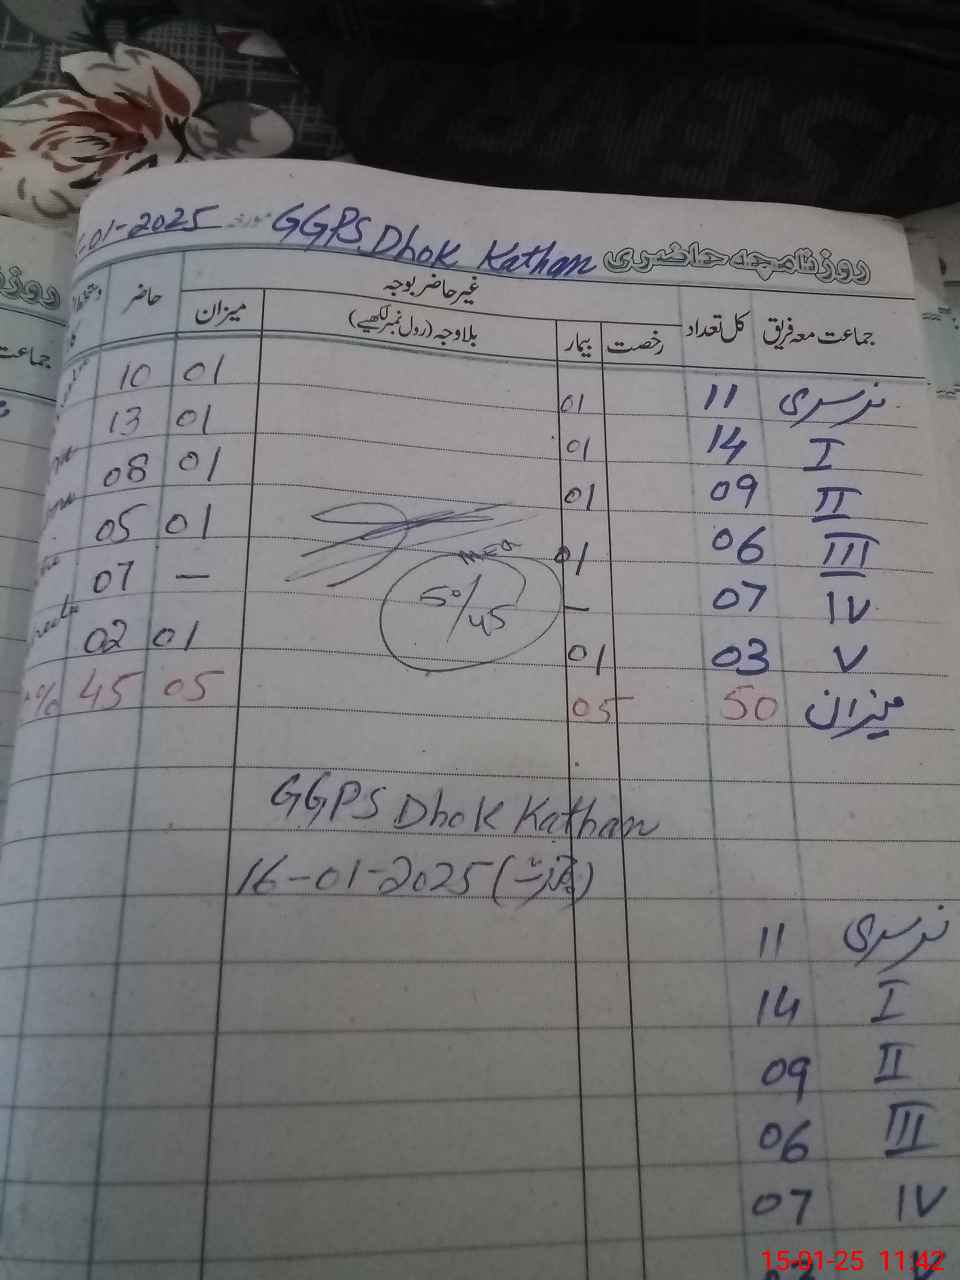 -01-2025 مورخہ GGPS Dhok Kathan روزنامچہ حاضری
جماعت معہ فریق کل تعداد غیر حاضر بوجہ حاضر
رخصت بیمار بلاوجہ (رول نمبر لکھیے) میزان
نرسری 11 01 01 10
I 14 01 01 13
II 09 01 01 08
III 06 01 01 05
IV 07 — — 07
V 03 01 01 02
میزان 50 05 05 45 %
50/45
GGPS Dhok Kathan
16-01-2025 (جمعرات)
نرسری 11
I 14
II 09
III 06
IV 07
V
15-01-25 11:42